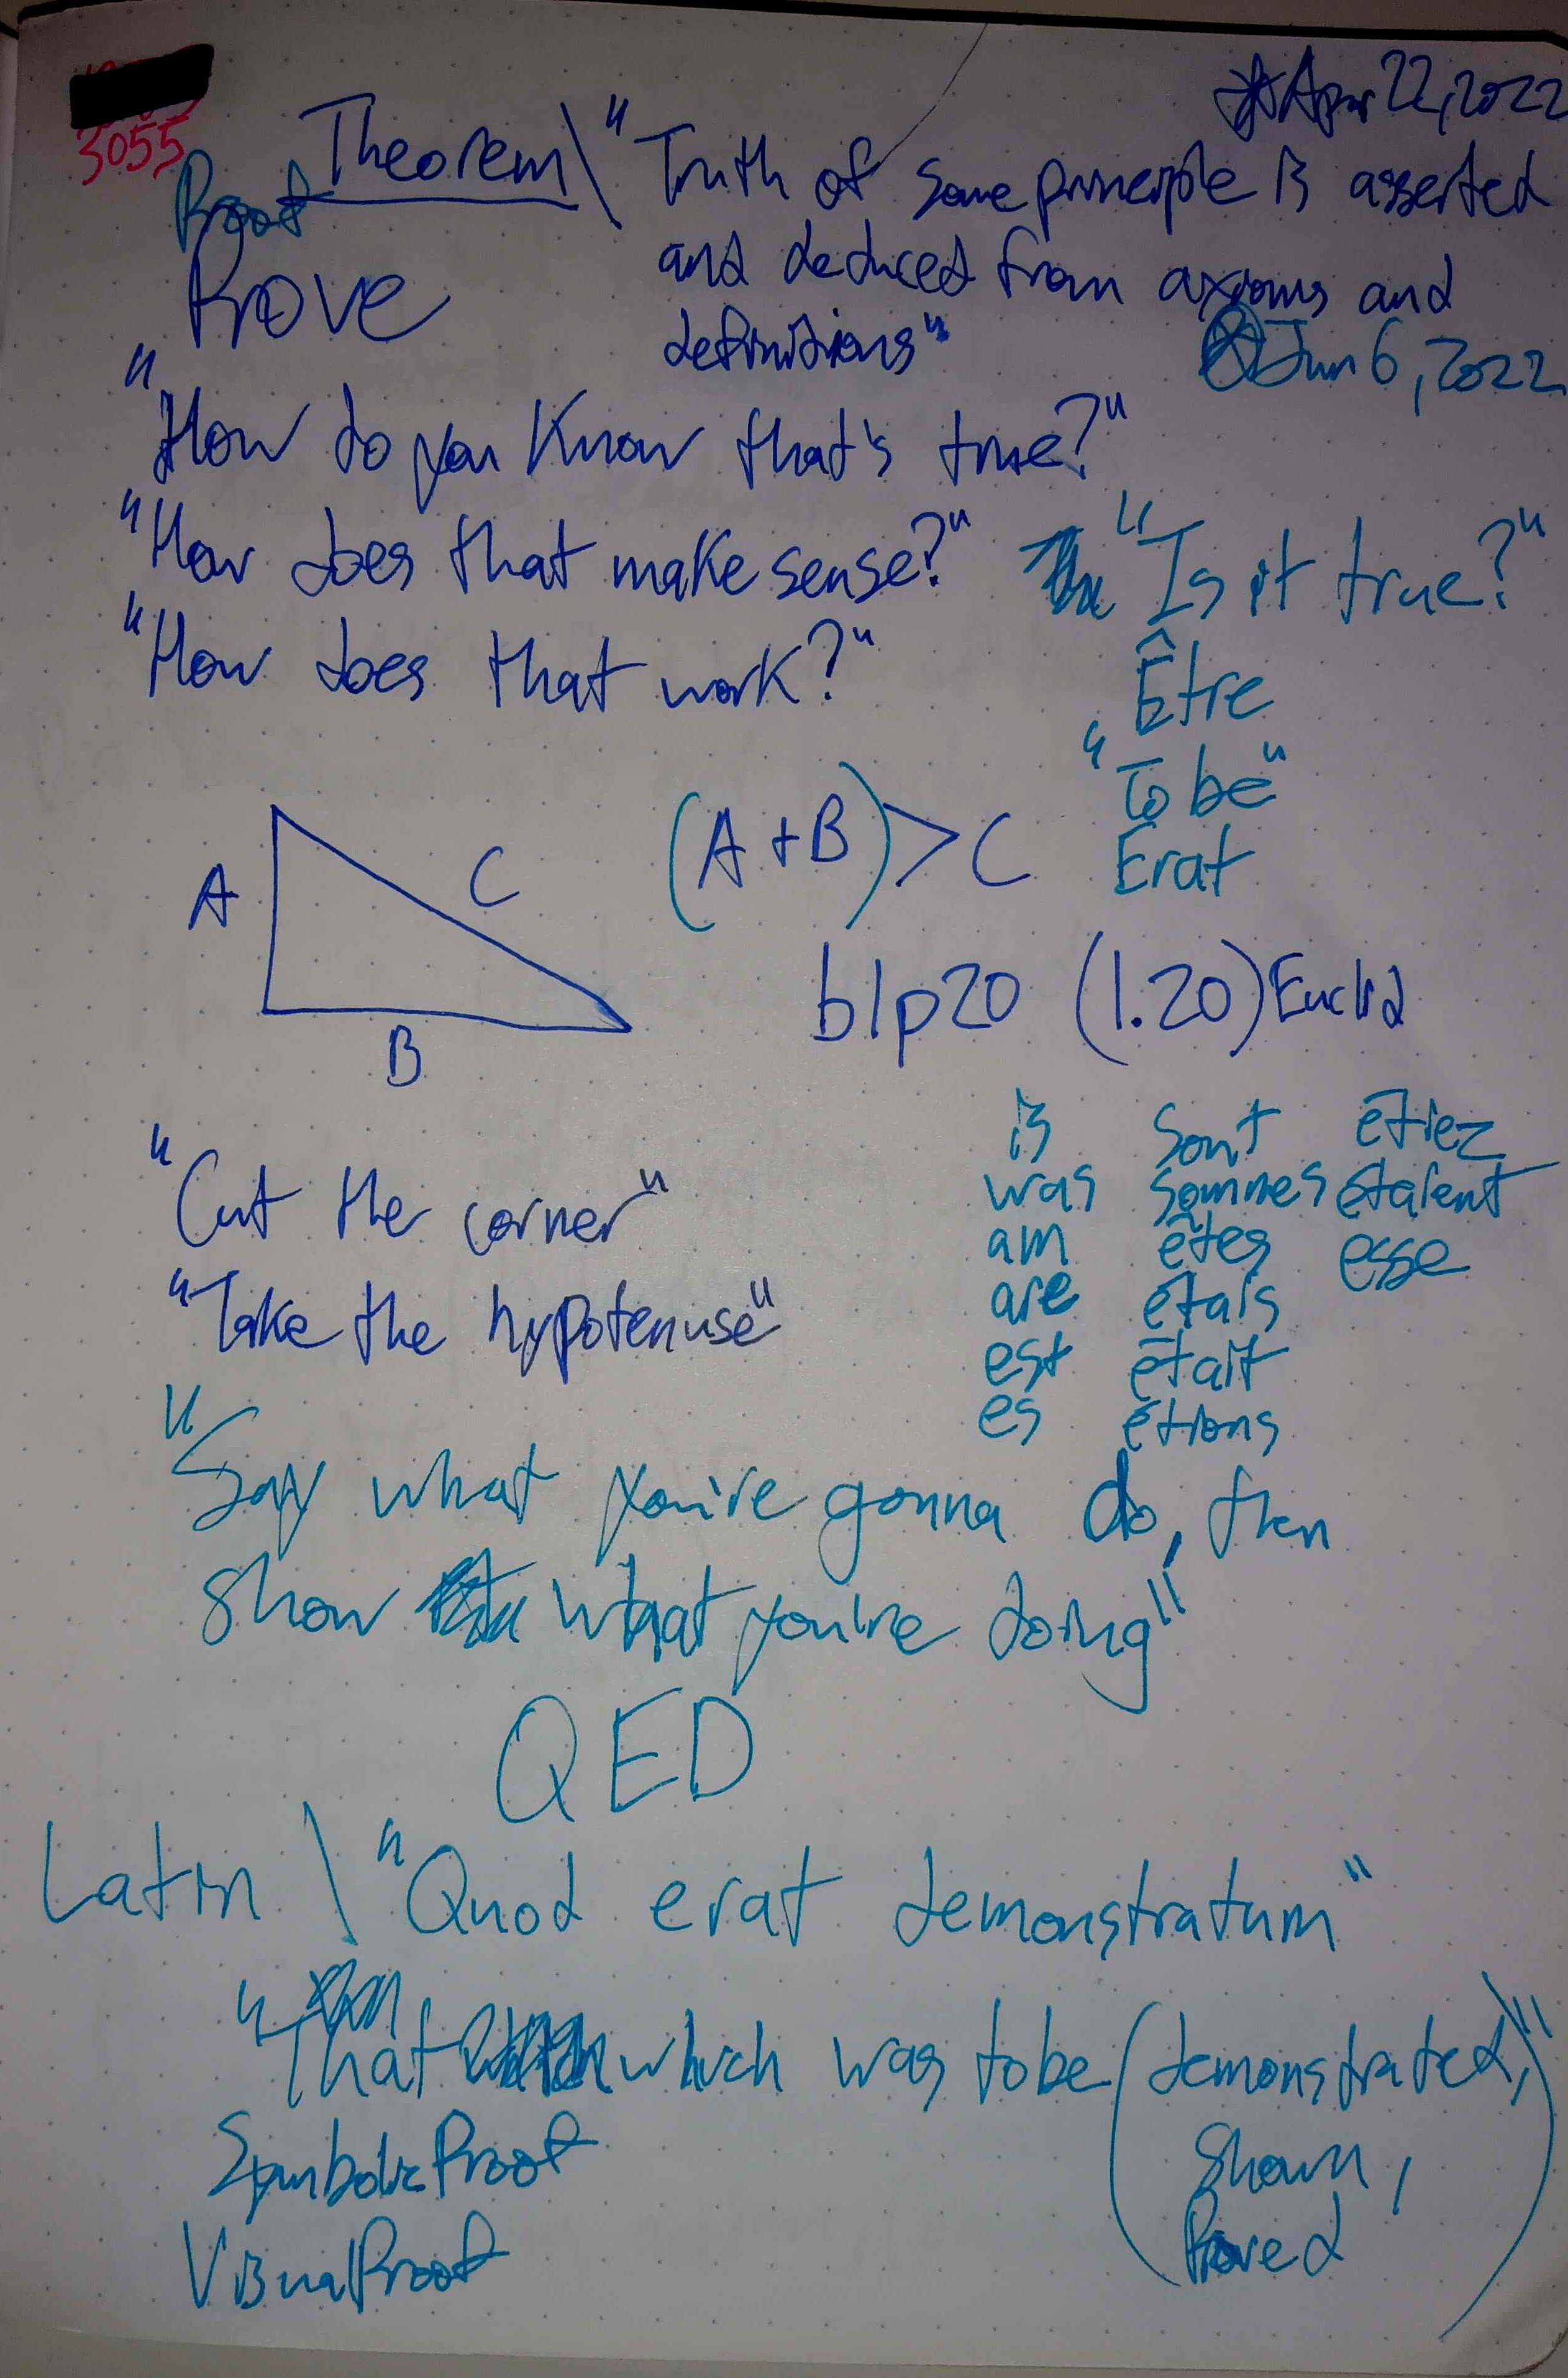 Apr 22, 2022
3055
Theorem \ "Truth of some principle is asserted
and deduced from axioms and
definitions"
Proof
Prove
Jun 6, 2022
"How do you know that's true?"
"How does that make sense?"
"Is it true?"
"How does that work?"
Être
"To be"
Erat
A
C
B
(A + B) > C
b1p20 (1.20) Euclid
"Cut the corner"
"Take the hypotenuse"
is sont étiez
was sommes étaient
am êtes esse
are étais
est était
es étions
"Say what you're gonna do, then
show what you're doing"
QED
Latin \ "Quod erat demonstratum"
"That which was to be (demonstrated,"
shown,
Proved)
Symbolic Proof
Visual Proof